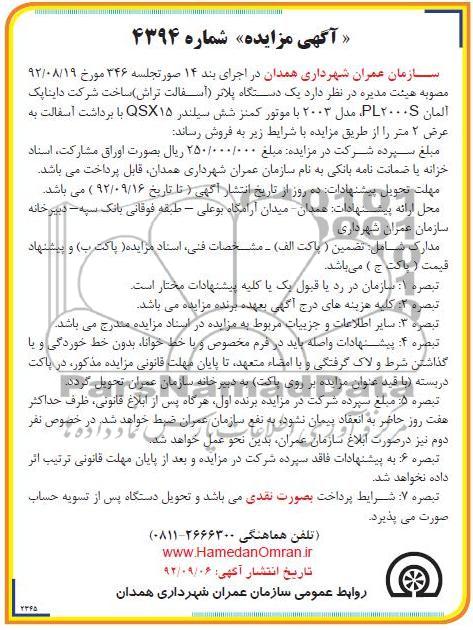 « آگهی مزایده» شماره ۴۳۹۴
ســـازمان عمران شهرداری همدان در اجرای بند ۱۴ صورتجلسه ۳۴۶ مورخ ۹۲/۰۸/۱۹
مصوبه هیئت مدیره در نظر دارد یک دســتگاه پلانر (آســفالت تراش)ساخت شرکت داینایک
آلمان PL۲۰۰۰S، مدل ۲۰۰۳ با موتور کمنز شش سیلندر QSX۱۵ با برداشت آسفالت به
عرض ۲ متر را از طریق مزایده با شرایط زیر به فروش رساند:
مبلغ سپـرده شرکت در مزایده: مبلغ ۲۵۰/۰۰۰/۰۰۰ ریال بصورت اوراق مشارکت، اسناد
خزانه یا ضمانت نامه بانکی به نام سازمان عمران شهرداری همدان، قابل پرداخت می باشد.
مهلت تحویل پیشنهادات: ده روز از تاریخ انتشار آگهی ( تا تاریخ ۹۲/۰۹/۱۶ ) می باشد.
محل ارائه پیشـــنهادات: همدان– میدان آرامگاه بوعلی – طبقه فوقانی بانک سپه– دبیرخانه
سازمان عمران شهرداری
مدارک شــامل: تضمین ( پاکت الف) ـ مشــخصات فنی، اسناد مزایده( پاکت ب) و پیشنهاد
قیمت ( پاکت ج ) می‌باشد.
تبصره ۱: سازمان در رد یا قبول یک یا کلیه پیشنهادات مختار است.
تبصره ۲: کلیه هزینه های درج آگهی بعهده برنده مزایده می باشد.
تبصره ۳: سایر اطلاعات و جزییات مربوط به مزایده در اسناد مزایده مندرج می باشد.
تبصره ۴: پیشــنهادات واصله باید در فرم مخصوص و با خط خوانا، بدون خط خوردگی و یا
گذاشتن شرط و لاک گرفتگی و با امضاء متعهد، تا پایان مهلت قانونی مزایده مذکور، در پاکت
دربسته (با قید عنوان مزایده بر روی پاکت) به دبیرخانه سازمان عمران تحویل گردد.
تبصره ۵: مبلغ سپرده شرکت در مزایده برنده اول، هرگاه پس از ابلاغ قانونی، ظرف حداکثر
هفت روز حاضر به انعقاد پیمان نشود، به نفع سازمان عمران ضبط خواهد شد. در خصوص نفر
دوم نیز درصورت ابلاغ سازمان عمران، بدین نحو عمل خواهد شد.
تبصره ۶: به پیشنهادات فاقد سپرده شرکت در مزایده و بعد از پایان مهلت قانونی ترتیب اثر
داده نخواهد شد.
تبصره ۷: شــرایط پرداخت بصورت نقدی می باشد و تحویل دستگاه پس از تسویه حساب
صورت می پذیرد.
(تلفن هماهنگی ۲۶۶۶۳۰۰-۰۸۱۱)
www.HamedanOmran.ir
تاریخ انتشار آگهی: ۹۲/۰۹/۰۶
روابط عمومی سازمان عمران شهرداری همدان
۲۳۶۵